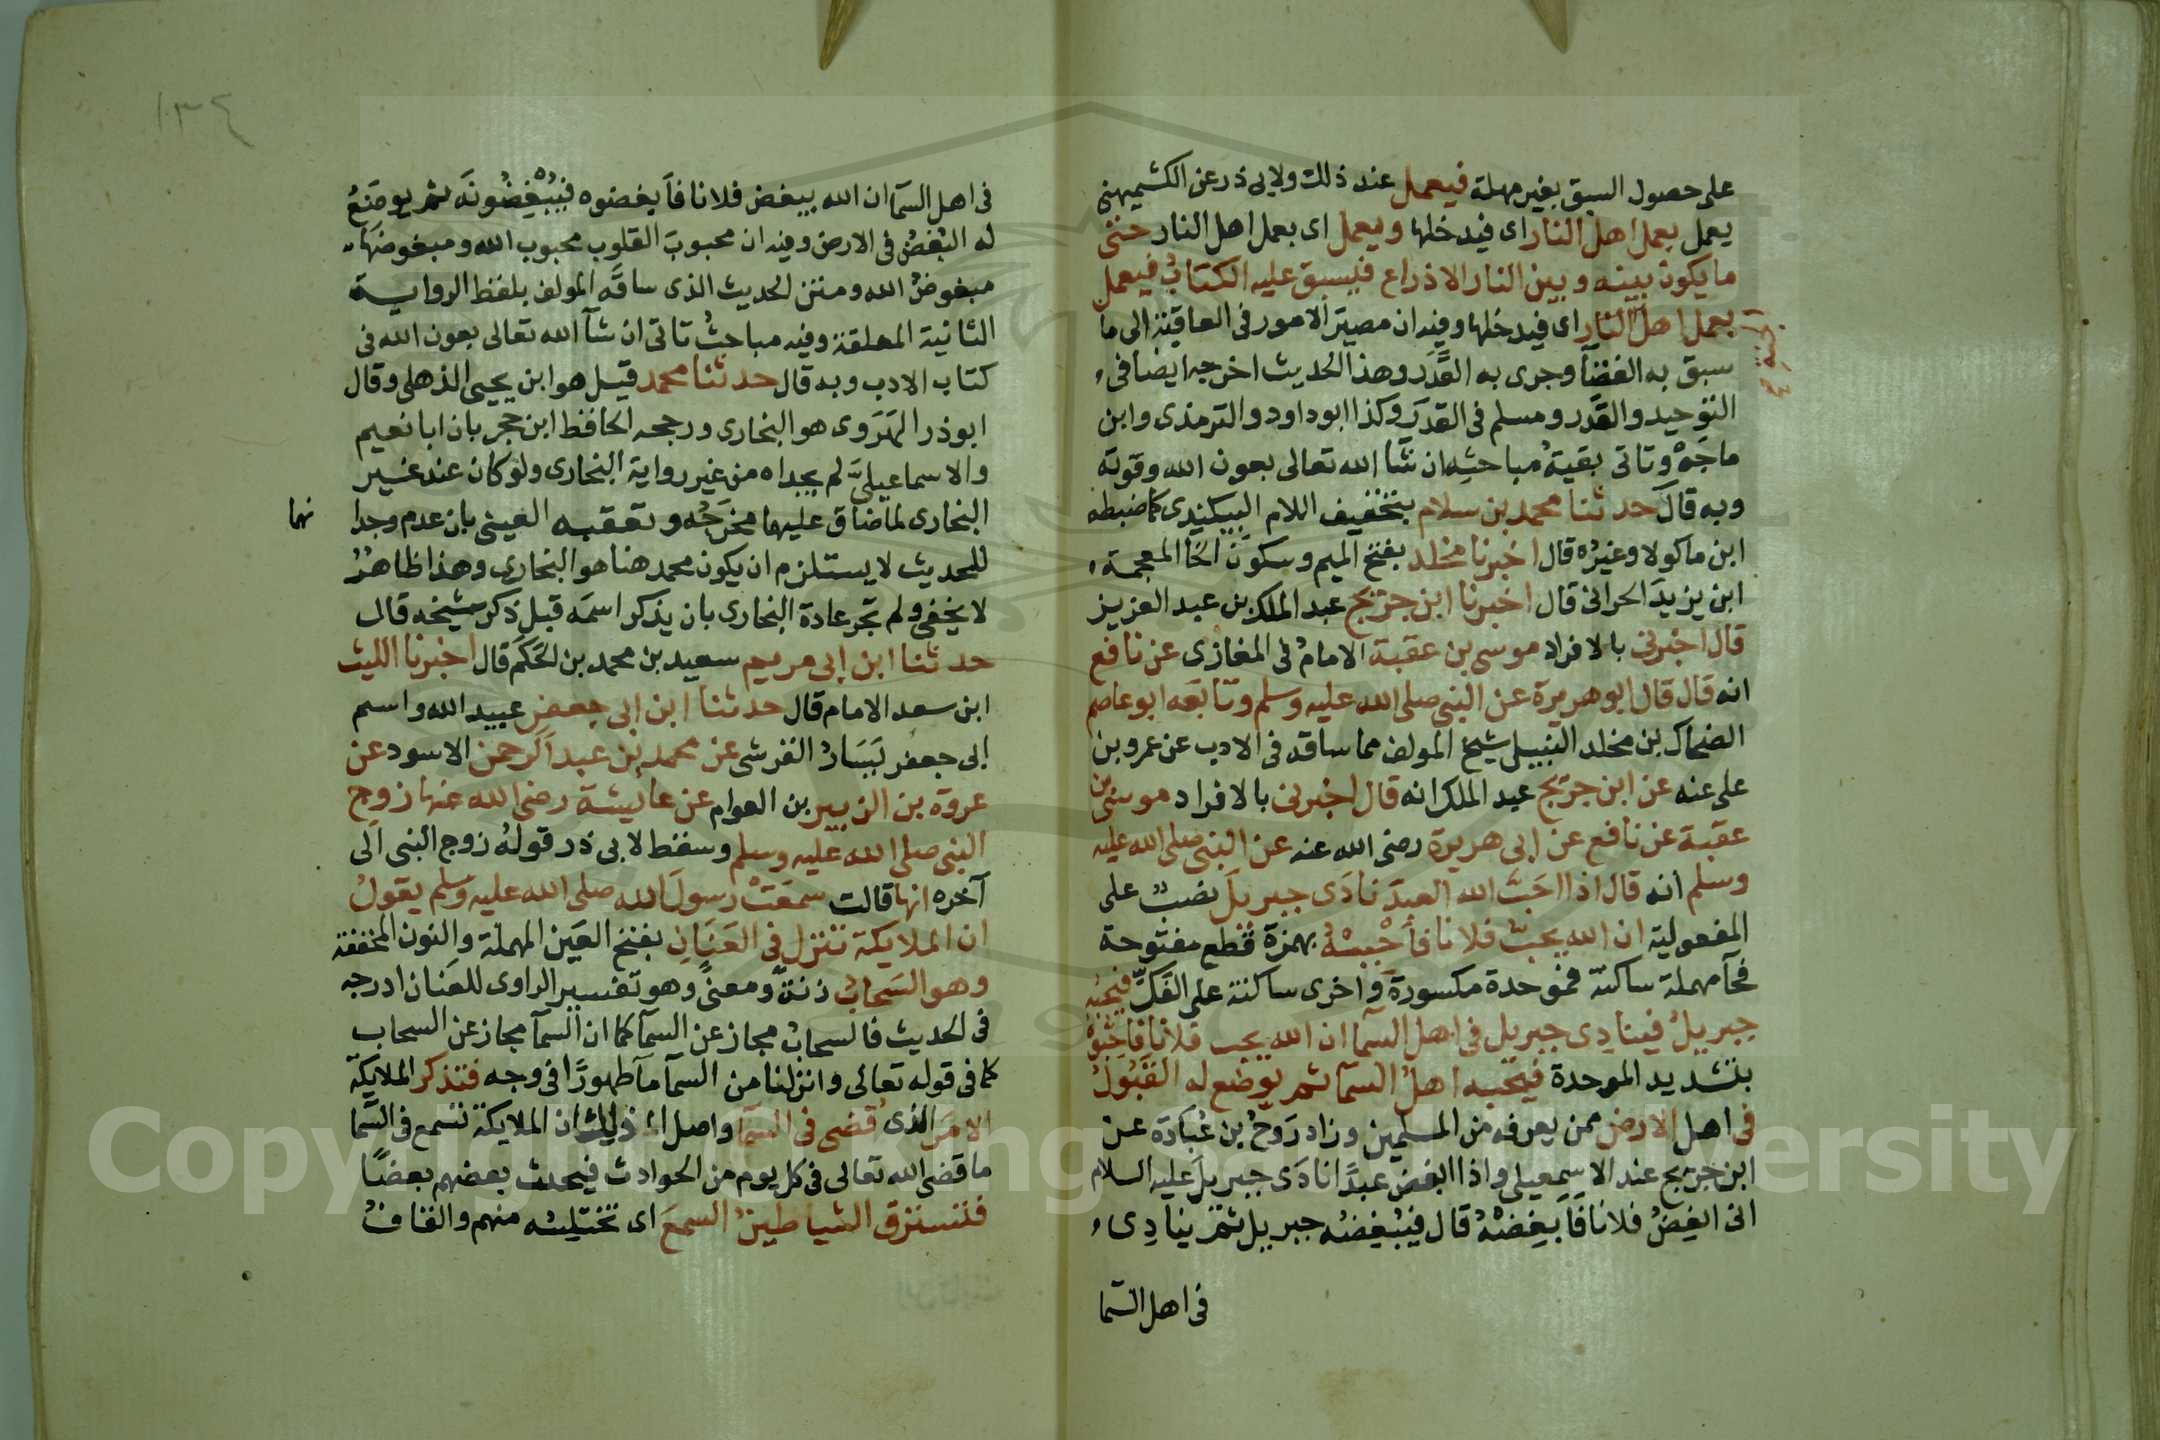 على حصول السبق بغير مهلة فيعمل عند ذلك ولابى ذر عن الكشميهنى
يعمل بعمل اهل النار اى فيدخلها ويعمل اى بعمل اهل النار حتى
ما يكون بينه وبين النار الا ذراع فيسبق عليه الكتاب فيعمل
بعمل اهل النار اى فيدخلها وفيه ان مصير الامور فى العاقبة الى ما
سبق به القضآ وجرى به القَدَر وهذا الحديث اخرجه ايضا فى
التوحيد والقدَر ومسلم فى القدَر وكذا ابو داود والترمذى وابن
ماجَهْ وتاتى بقيةُ مباحثِه ان شآ الله تعالى بعون الله وقوته
وبه قال حدثنا محمد بن سلام بتخفيف اللام البيكندى كما ضبطه
ابن ماكولا وغيرُه قال اخبرنا مخلد بفتح الميم وسكون الخا المعجمة
ابن يزيدَ الحرانى قال اخبرنا ابن جريج عبد الملك بن عبد العزيز
قال اخبرنى بالافراد موسى بن عقبة الامامُ فى المغازى عن نافع
انه قال قال ابو هريرة عن النبى صلى الله عليه وسلم وتابَعه ابو عاصم
الضحاك بن مخلد النبيلى شيخ المولف مما ساقه فى الادب عن عمرو بن
على عنه عن ابن جريج عبد الملك انه قال اخبرنى بالافراد موسى بن
عقبة عن نافع عن ابى هريرة رضى الله عنه عن النبى صلى الله عليه
وسلم انه قال اذا احَبَّ الله العبدَ نادَى جبريلَ نصبٌ على
المفعولية ان الله يحبّ فلانا فأحْبِبْهُ بهمزة قطع مفتوحة
فحآ مهملة ساكنة فموحدة مكسورة واخرى ساكنة على الفَكّ فيحبُّه
جبريلُ فينادِى جبريل فى اهل السمآ ان الله يحب فلانا فاحِبّوهُ
بتشديد الموحدة فيحُبه اهلُ السمآ ثم يوضع له القَبُولُ
فى اهل الارض ممن يعرفه من المسلمين وزاد رَوحُ بن عُبادَة عن
ابن جريج عند الاسمعيلى واذا ابغض عبدًا نادَى جبريلَ عليه السلام
انى ابغِضُ فلانا فأَبغِضْهُ قال فيُبْغِضُه جبريل ثم ينادِى
فى اهل السّما
١٣٤
فى اهل السمآ ان الله يبغض فلانا فأبغضوه فيُبْغِضُونَه ثم يوضَعُ
له البُغضُ فى الارض وفيه ان محبوبَ القلوب محبوب الله ومبغوضَها
مبغوضُ الله ومتن الحديث الذى ساقَه المولف بلفظ الرواية
الثانية المعلقة وفيه مباحثُ تاتى ان شآ الله تعالى بعون الله فى
كتاب الادب وبه قال حدثنا محمد قيل هو ابن يحيى الذهلى وقال
ابو ذر الهَرَوى هو البخارى ورجحه الحافظ ابن حجر بان ابا نعيم
والاسماعيلىّ لم يجداه من غير رواية البخارى ولو كان عند غير
البخارى لما ضاق عليهما مخرَجُه وتعقبه العينى بان عدم وجدا نهما
للحديث لا يستلزم ان يكون محمد هنا هو البخارى وهذا ظاهرُ
لا يخفى ولم تجر عادة البخارى بان يذكر اسمَه قبل ذكر شيخه قال
حدثنا ابن ابى مريم سعيد بن محمد بن الحَكَم قال اخبرنا الليث
ابن سعد الامام قال حدثنا ابن ابى جعفر عبيد الله واسم
ابى جعفر يَسَارُ القرشى عن محمد بن عبد الرحمن الاسود عن
عروة بن الزبير بن العوام عن عايشة رضى الله عنها زوج
النبى صلى الله عليه وسلم وسقط لابى ذر قولهُ زوج النبى الى
آخره انها قالت سمعَتْ رسولَ الله صلى الله عليه وسلم يقولُ
ان الملايكة تنزل فى العَنَانِ بفتح العَين المهملة والنون المخففة
وهو السَحابُ زنةً ومعنًى وهو تفسير الراوى للعنان ادرجه
فى الحديث فالسحابُ مجاز عن السمآ كما ان السمآ مجاز عن السحاب
كما فى قوله تعالى وانزلنا من السمآ مآ طهورًا فى وجه فتذكر الملايكة
الامرَ الذى قضى فى السمآ واصل ذلك ان الملايكة تسمع فى السّما
ما قضى الله تعالى فى كل يوم من الحوادث فيحدث بعضهم بعضًا
فتسترق الشياطينُ السمعَ اى تختلِسُه منهم والقافُ
Copyright © King Saud University